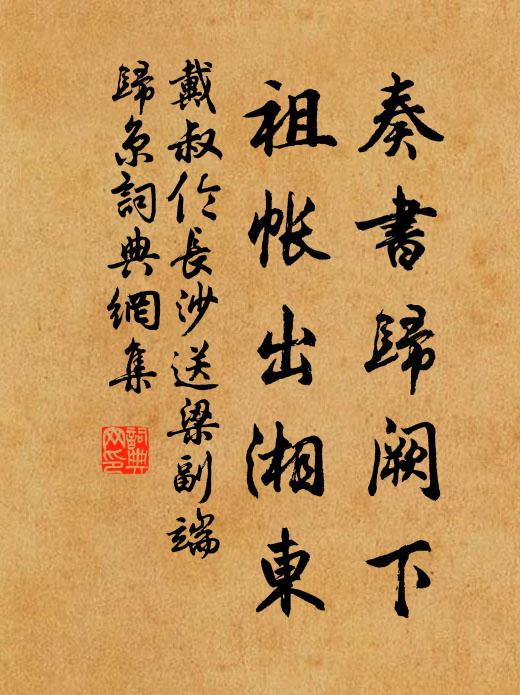 奏書歸闕下
祖帳出湘東
戴叔伦長沙送梁副端
歸京詞典網集
詞典
网印